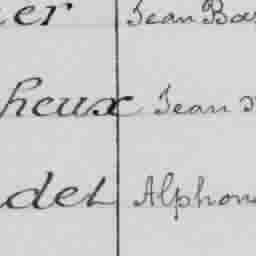 er Jean Ba
heux Jean
del Alphon